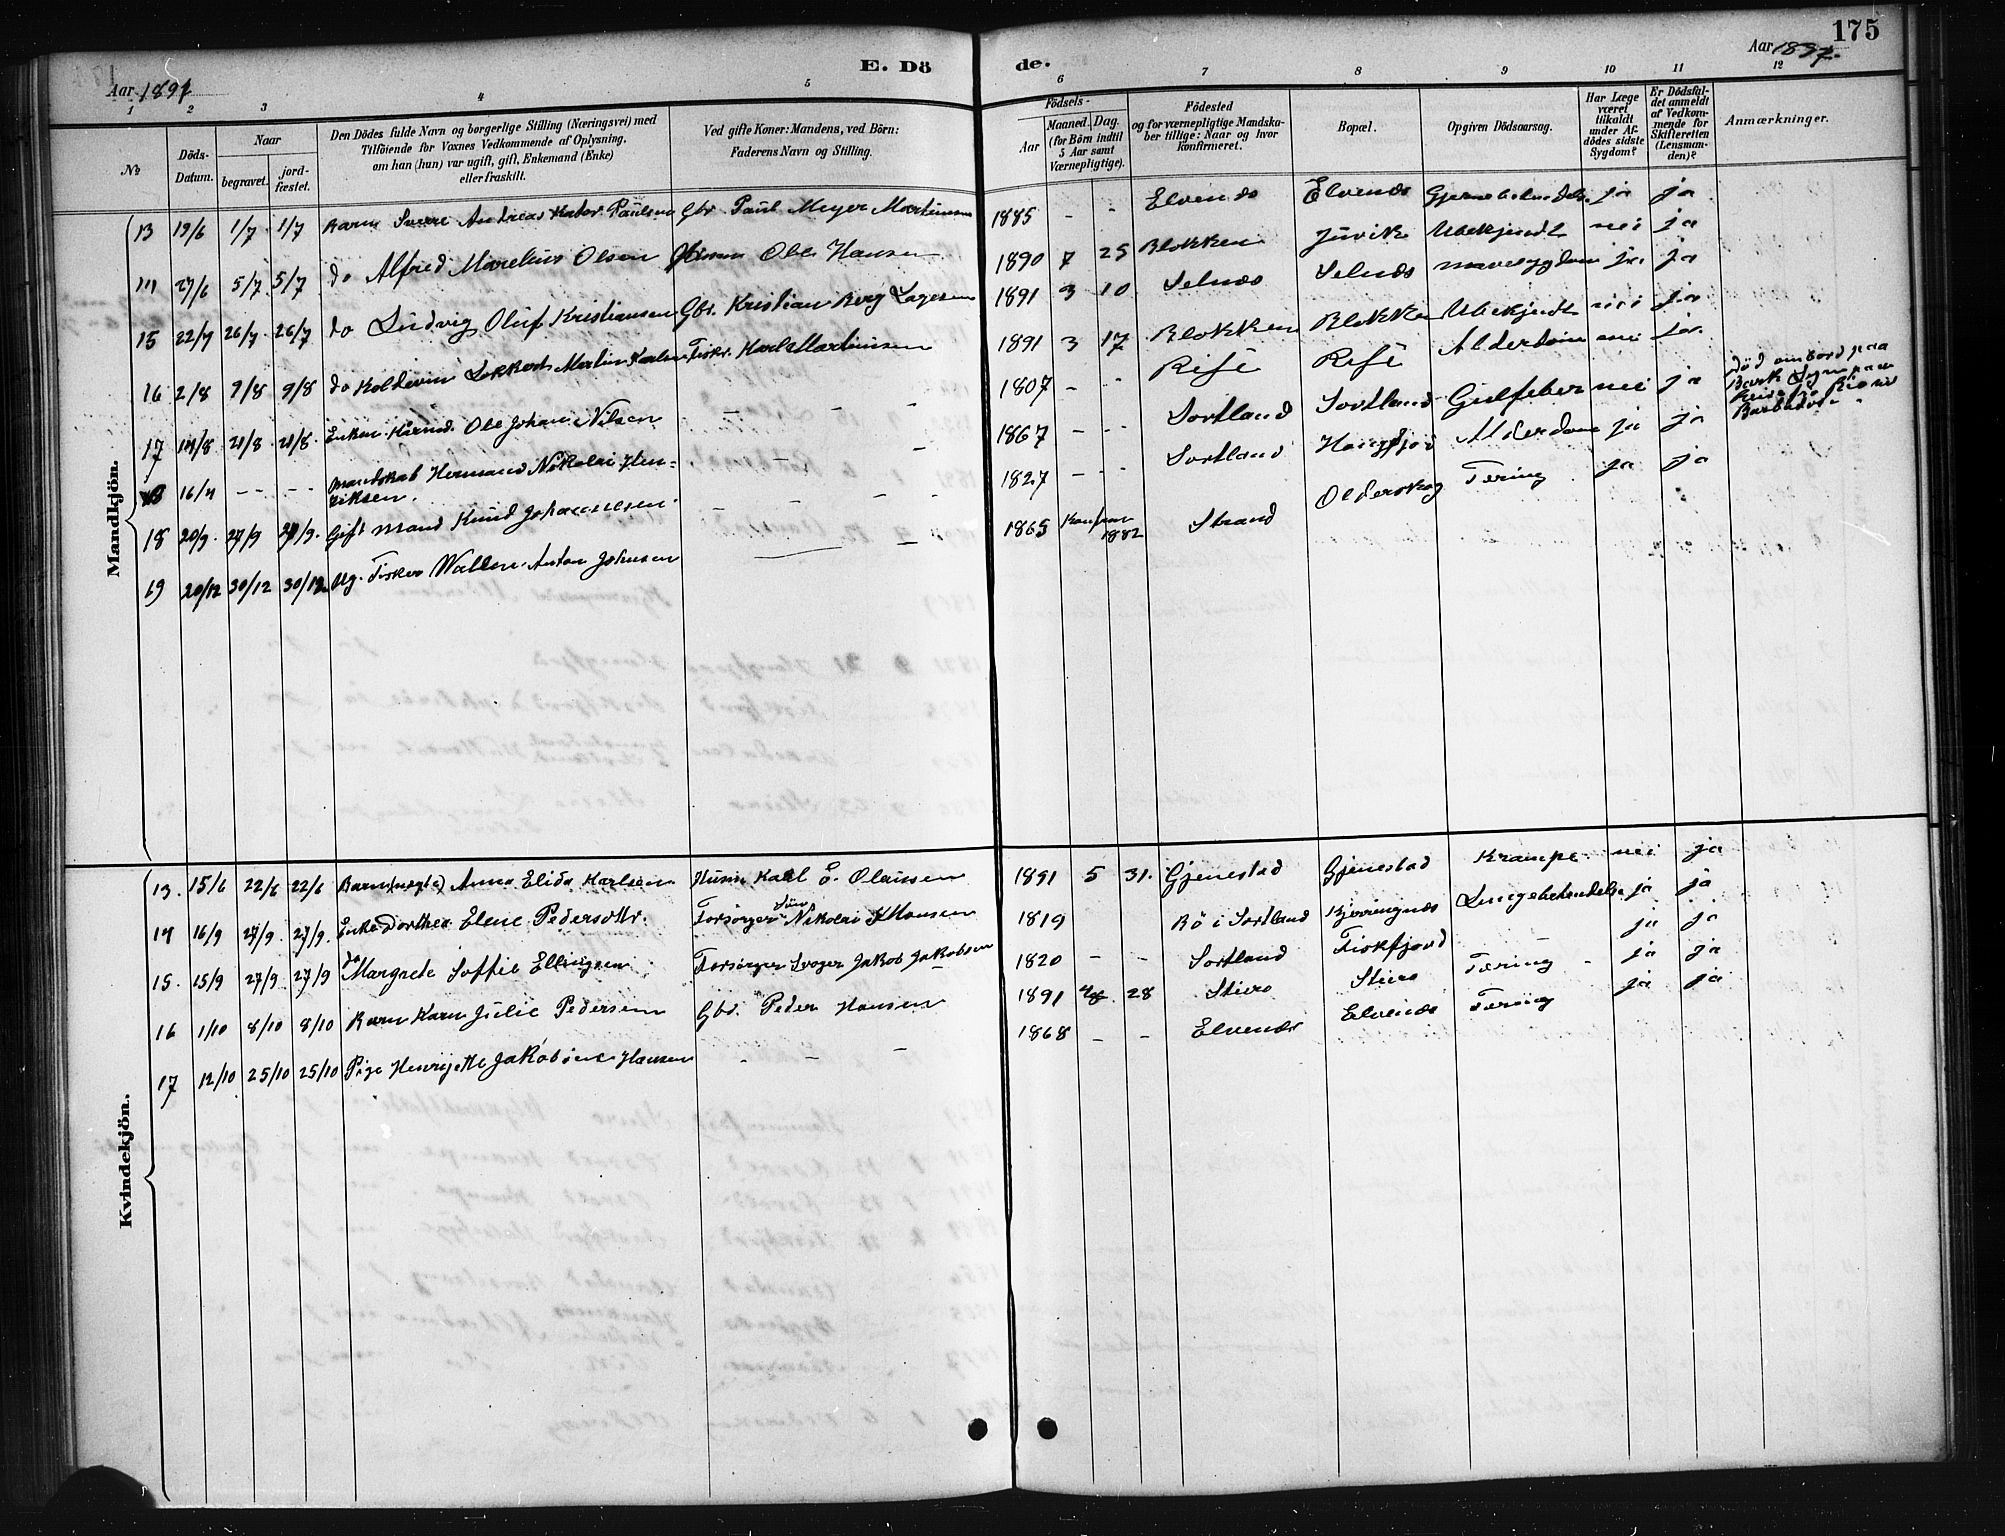 175
E. Döde.
Aar 1891
Aar 1891.
1 2 3 4 5 6 7 8 9 10 11 12
No
Döds-Datum.
Naar
begravet.
jord-fæstet.
Den Dödes fulde Navn og borgerlige Stilling (Næringsvei) med
Tilföiende for Voxnes Vedkommende af Oplysning,
om han (hun) var ugift, gift, Enkemand (Enke)
eller fraskilt.
Ved gifte Koner: Mandens, ved Börn:
Faderens Navn og Stilling.
Födsels-
Aar
Maaned. Dag.
(for Börn indtil
5 Aar samt
Værnepligtige).
Födested
og for værnepligtige Mandska-
ber tillige: Naar og hvor
konfirmeret.
Bopæl.
Opgiven Dödsaarsag.
Har Læge
været
tilkaldt
under Af-
dödes sidste
Sygdom?
Er Dödsfal-
det anmeldt
af Vedkom-
mende for
Skifteretten
(Lensman-
den)?
Anmærkninger.
Mandkjön.
13 19/6 1/7 1/7 Barn Sverre Andreas Paulsen Gbr. Paul Meyer Martinsen 1885 - - Elvenes Elvenes ja ja
14 27/6 5/7 5/7 do Alfred Marelius Olsen Ole Hansen 1890 7 25 Blokken Juvik Ubekjendt nei ja
15 22/7 26/7 26/7 do Ludvig Oluf Kristiansen Gbr. Kristian Berg Lagesen 1891 3 10 Selnæs Selnæs Mavesygdom ja ja
16 2/8 9/8 9/8 do Koldevin Martin Karlsen Fisker Karl Martinsen 1891 3 17 Blokken Blokken Ubekjendt nei ja
17 14/8 21/8 21/8 Enkem. Ole Johan Nilsen - - - 1807 - - Risé Risé Alderdom nei ja
16/4 - - - - Mandskab Hermand Nikolai Hen-
riksen. - - 1867 - - Sortland Sortland Gulfeber nei ja
Död ombord paa
Bark
Reise fra Rio til
Barbados.
18 20/9 27/9 27/9 Gift Mand Knud Johannesen - - - 1827 - - Sortland Alderdom ja ja
19 20/12 30/12 30/12 Ug. Fisker Anton Johnsen - 1865 Konfirm 1882 Strand Olderskog Tæring ja ja
Kvindekjön.
13. 15/6 22/6 22/6 Barn (uægte) Anna Elida Karlsen Husm Karl E. Olausen 1891 5 31. Gjenestad Gjenestad Krampe nei ja
14 16/9 27/9 27/9 Enke Dorthea Elene Pedersdtr. Forsörger Sön Nikolai Hansen 1819 Bö i Sortland Kjerringnæs Lungebetændelse ja ja
15. 15/9 27/9 27/9 do Margrete Soffie Ellingsen Forsörger Svoger Jakob Jakobsen 1820 - - Sortland Fiskfjord ja ja
16 1/10 8/10 8/10 Barn Karn Julie Pedersen Gbr. Peder Hansen 1891 28 Stiero Stiero Tæring - ja ja
17 12/10 25/10 25/10 Pige Henrijette Jakobine Hansen - - - 1868 - - Elvenes Elvenæs Tæring ja ja